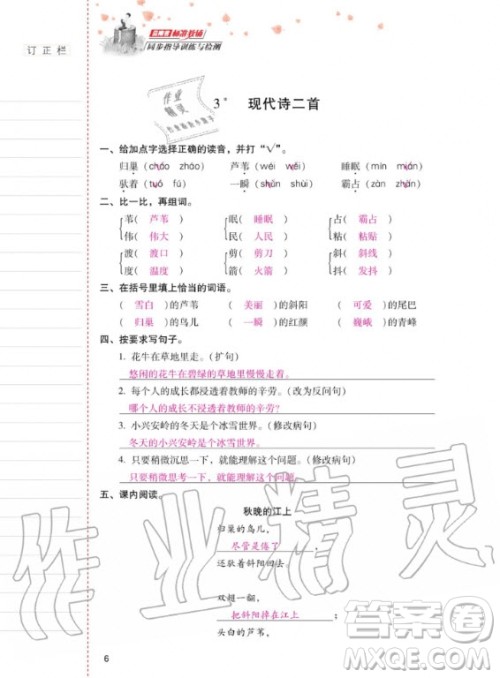 订正栏
同步指导训练与检测
3* 现代诗二首
一、给加点字选择正确的读音，并打“√”。
归巢（cháo zhào） 芦苇（wéi wěi） 睡眠（mín mián）
驮着（tuó fú） 一瞬（shùn shùi） 霸占（zàn zhàn）
二、比一比，再组词。
苇（ 芦苇 ） 眠（ 睡眠 ） 占（ 霸占 ）
伟（ 伟大 ） 民（ 人民 ） 粘（ 粘贴 ）
渡（ 渡口 ） 剪（ 剪刀 ） 斜（ 斜线 ）
度（ 温度 ） 箭（ 火箭 ） 抖（ 发抖 ）
三、在括号里填上恰当的词语。
（ 雪白 ）的芦苇 （ 美丽 ）的斜阳 （ 可爱 ）的尾巴
（ 归巢 ）的鸟儿 （ 一瞬 ）的红颜 （ 巍峨 ）的青峰
四、按要求写句子。
1. 花牛在草地里走。（扩句）
悠闲的花牛在碧绿的草地里慢慢走着。
2. 每个人的成长都浸透着教师的辛劳。（改为反问句）
哪个人的成长不浸透着教师的辛劳？
3. 小兴安岭的冬天是个冰雪世界。（修改病句）
冬天的小兴安岭是个冰雪世界。
4. 只要稍微沉思一下，就能理解这个问题。（修改病句）
只要稍微思考一下，就能理解这个问题。
五、课内阅读。
秋晚的江上
归巢的鸟儿，
尽管是倦了
还驮着斜阳回去。
双翅一翻，
把斜阳掉在江上
头白的芦苇，
6
作业精灵
答案圈
MXQE.COM